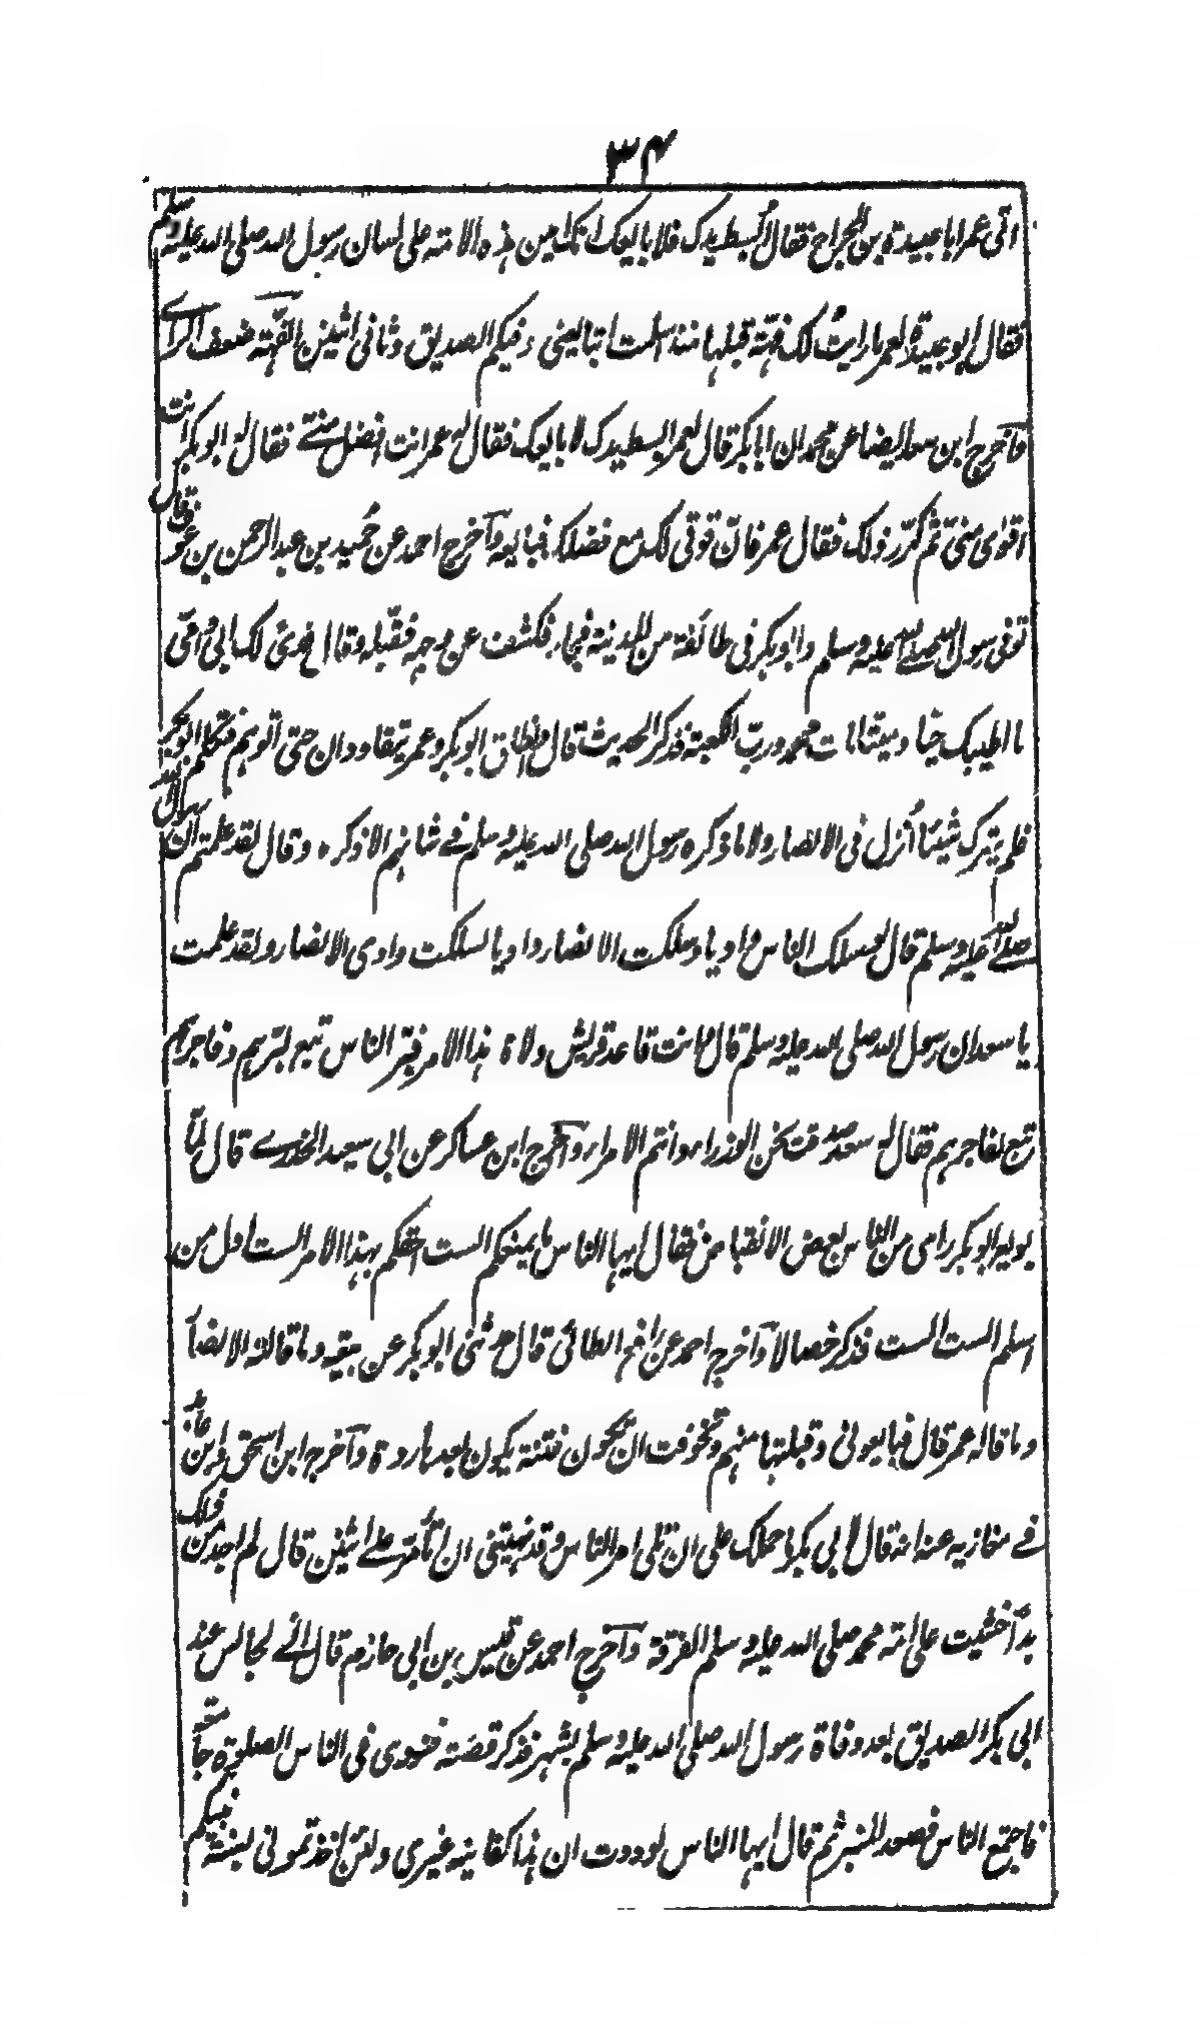 ٣٤
اتى عمر ابا عبيدة بن الجراح فقال ابسط يدك فلابايعك انك امين هذه الامة على لسان رسول الله صلى الله عليه وسلم
فقال ابو عبيدة لعمر ما رايت لك فهة قبلها منذ اسلمت اتبايعنى وفيكم الصديق وثانى اثنين الفهة ضعف الراے
وآخرج ابن سعد ايضا عن محمد ان ابا بكر قال لعمر ابسط يدك لابايعك فقال له عمر انت افضل منے فقال له ابو بكر انت
اقوى منى ثم كرّر ذلك فقال عمر فانّ قوتى لك مع فضلك فبايعه وآخرج احمد عن حُميد بن عبد الرحمن بن عوف قال
توفى رسول الله صلے الله عليه وسلم وابو بكر فى طائفة من المدينة فجاء فكشف عن وجهه فقبّله وقال فدى لك ابى وامّى
ما اطيبك حيّا وميتا مات محمد وربّ الكعبة فذكر الحديث قال وانطلق ابو بكر وعمر يتقاودان حتى اتوهم فتكلم ابو بكر
فلم يترك شيئا اُنزل فى الانصار ولا ما ذكره رسول الله صلى الله عليه وسلم فے شانهم الا ذكره وقال لقد علمتم ان رسول الله
صلے الله عليه وسلم قال لو سلك الناس واديا وسلكت الانصار واديا لسلكت وادى الانصار ولقد علمت
يا سعد ان رسول الله صلى الله عليه وسلم قال وانت قاعد قريش ولاة هذا الامر فبرّ الناس تبع لبرّهم وفاجرهم
تبع لفاجرهم فقال له سعد صدقت نحن الوزراء وانتم الامراء وآخرج ابن عساكر عن ابى سعيد الخدرے قال لمّا
بويع ابو بكر راى من الناس بعض الانقباض فقال ايها الناس ما يمنعكم الست احقكم بهذا الامر الست اول من
اسلم الست الست فذكر خصالا وآخرج احمد عن رافع الطائى قال حدثنى ابو بكر عن بيعته وما قالته الانصار
وما قاله عمر قال فبايعونى وقبلتها منهم وتخوفت ان تكون فتنة يكون بعدها ردة وآخرج ابن اسحق وابن عائذ
فے مغازيه عنه انه قال لابى بكر ما حملك على ان تلى امر الناس وقد نهيتنى ان اتأمّر علے اثنين قال لم اجد من ذلك
بدّا خشيت على امة محمد صلى الله عليه وسلم الفرقة وآخرج احمد عن قيس بن ابى حازم قال انے لجالس عند
ابى بكر الصديق بعد وفاة رسول الله صلى الله عليه وسلم بشهر فذكر قصّته فنودى فى الناس الصلوة جامعة
فاجتمع الناس فصعد المنبر ثم قال ايها الناس لوددت ان هذا كفانيه غيرى ولئن اخذتمونى بسنة نبيكم